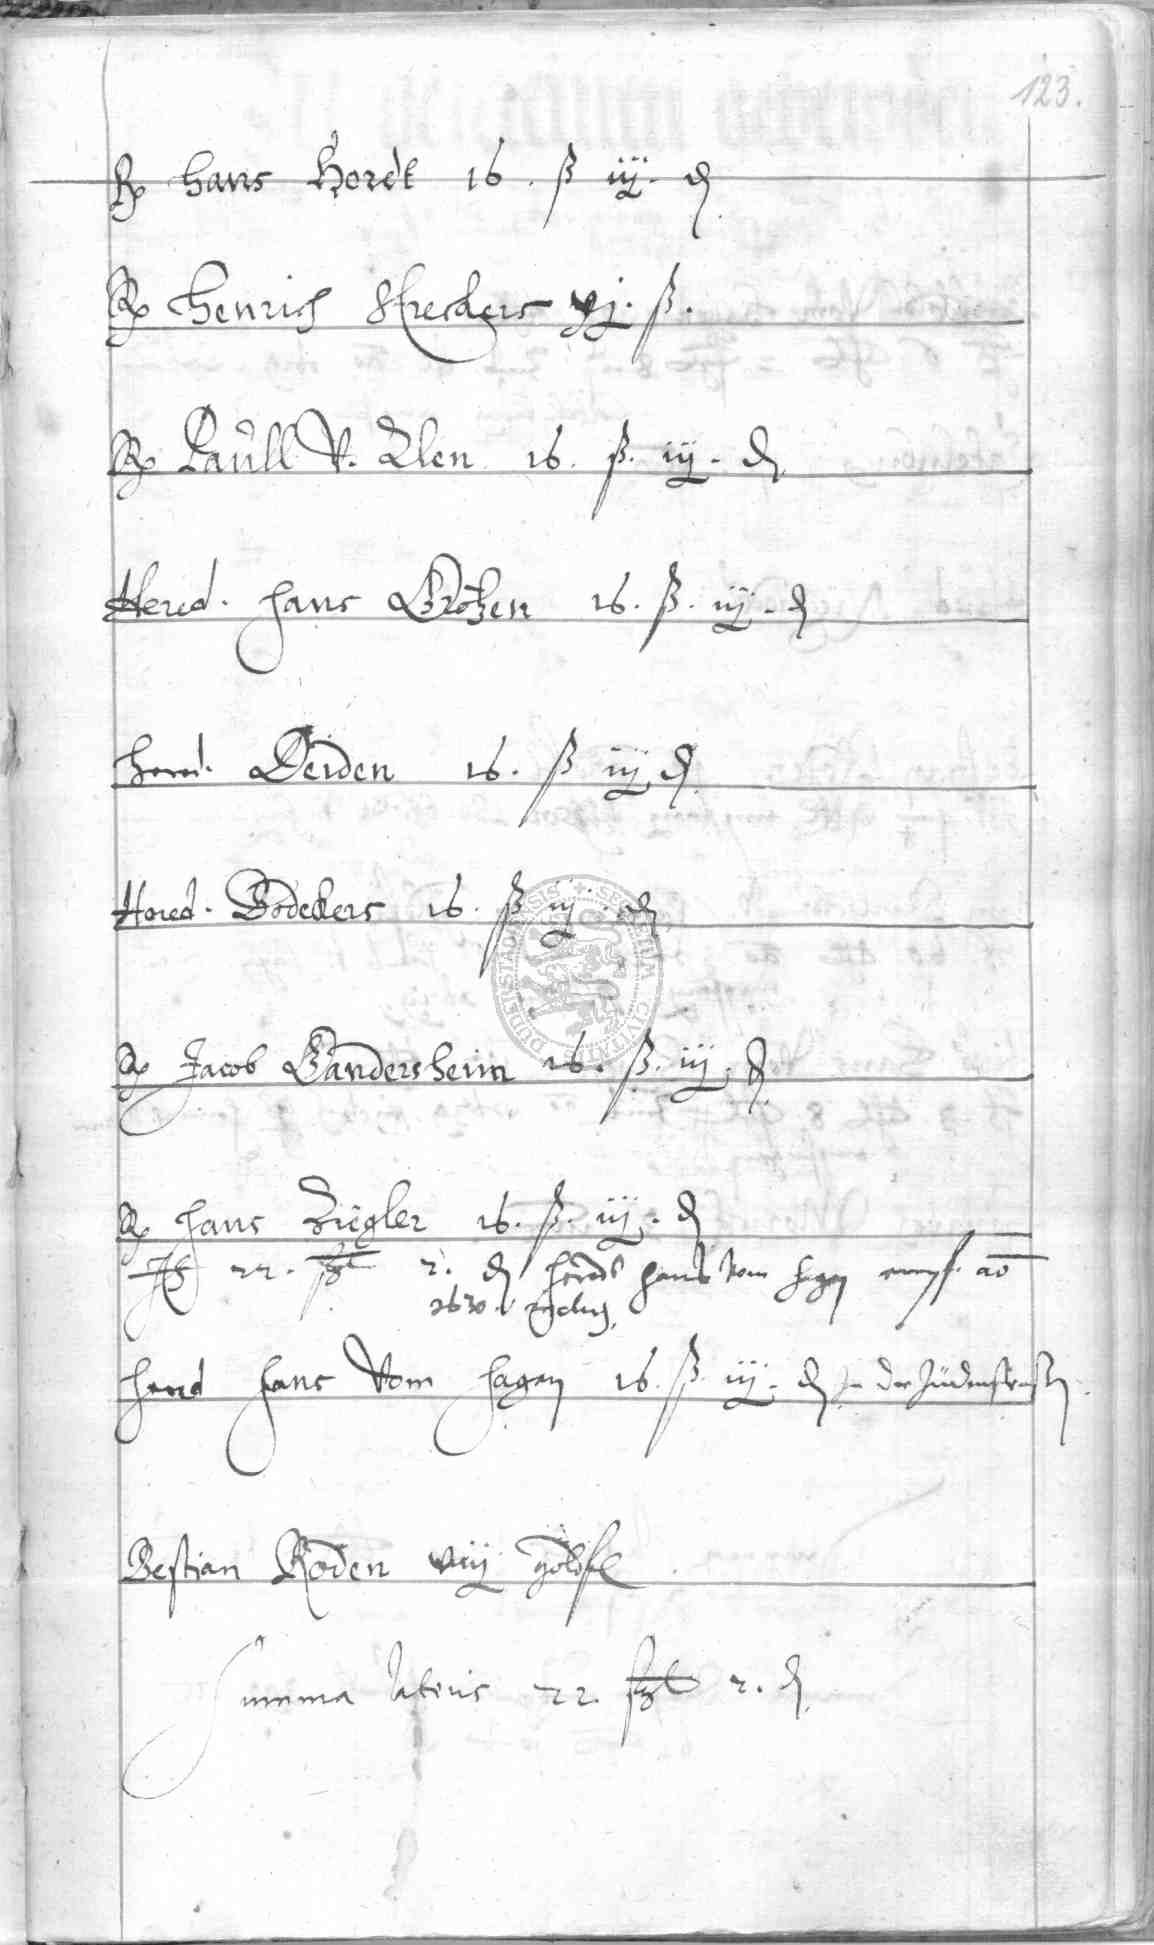 123.
Rp Hans Hordt 16. ß iij. ₰
Rp Henrich Streckers vj. ß.
Rp Paull V. Zlen 16. ß. iij. ₰
Hered. Hans Grotzen 16. ß. iij. ₰
Hered. Deiden 16. ß iij ₰
Hered. Bodekers 16. ß iij. ₰
SIGILLUM CIVITATIS DUDERSTADENSIS
Rp Jacob Gandersheim 16. ß. iij. ₰
Rp Hans Ziegler 16. ß. iij. ₰
22. 2. ₰ Hered Hans Vom Hagen empf. ao
1630.
Hered Hans Vom Hagen 16. ß. iij. ₰ in der Jüdenstraßen
Bestian Roden viij goldfl
Summa lateris 22. 2. ₰